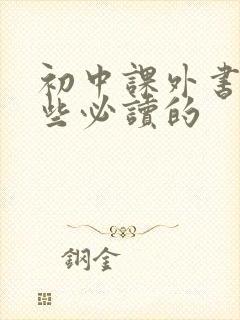 初中課外书
些必讀的
鋼金